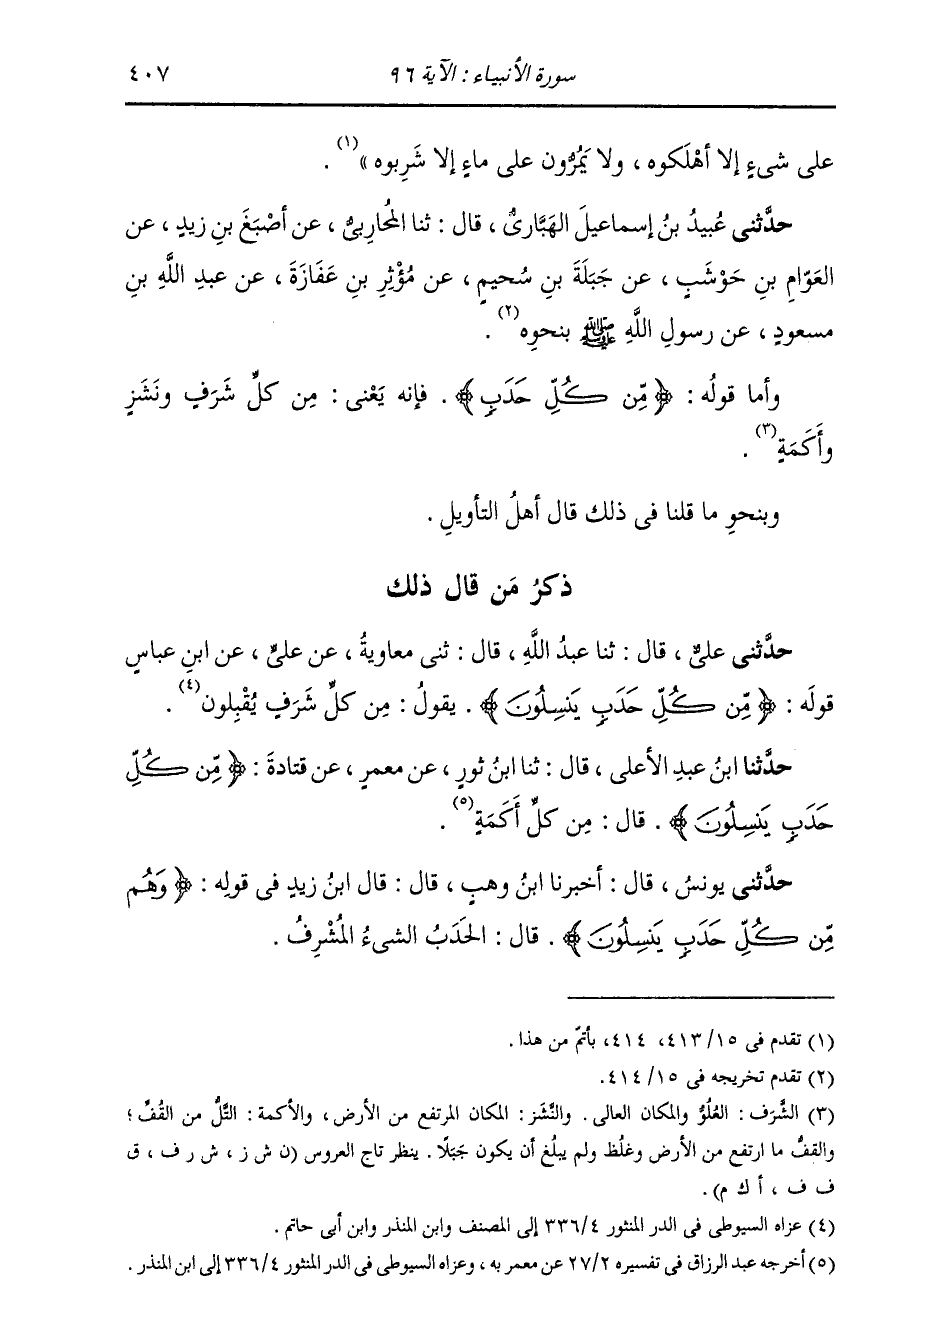 سورة الأنبياء : الآية ٩٦
٤٠٧
على شىءٍ إلا أهْلَكوه ، ولا يَمُرُّون على ماءٍ إلا شَرِبوه »(١) .
حدَّثنى عُبيدُ بنُ إسماعيلَ الهَبَّارىُّ ، قال : ثنا المُحاربىُّ ، عن أصْبَغَ بنِ زيدٍ ، عن
العَوّامِ بنِ حَوْشَبٍ ، عن جَبَلَةَ بنِ سُحيمٍ ، عن مُؤْثِرِ بنِ عَفَازَةَ ، عن عبدِ اللَّهِ بنِ
مسعودٍ ، عن رسولِ اللَّهِ ﷺ بنحوِه(٢) .
وأما قولُه : ﴿ مِّن كُلِّ حَدَبٍ ﴾ . فإنه يَعْنى : مِن كلِّ شَرَفٍ ونَشَزٍ
وأَكَمَةٍ(٣) .
وبنحوِ ما قلنا فى ذلك قال أهلُ التأويلِ .
ذكرُ مَن قال ذلك
حدَّثنى علىٌّ ، قال : ثنا عبدُ اللَّهِ ، قال : ثنى معاويةُ ، عن علىٍّ ، عن ابنِ عباسٍ
قولَه : ﴿ مِّن كُلِّ حَدَبٍ يَنسِلُونَ ﴾ . يقولُ : مِن كلِّ شَرَفٍ يُقْبِلون(٤) .
حدَّثنا ابنُ عبدِ الأعلى ، قال : ثنا ابنُ ثورٍ ، عن معمرٍ ، عن قتادةَ : ﴿ مِّن كُلِّ
حَدَبٍ يَنسِلُونَ ﴾ . قال : مِن كلِّ أَكَمَةٍ(٥) .
حدَّثنى يونسُ ، قال : أخبرنا ابنُ وهبٍ ، قال : قال ابنُ زيدٍ فى قولِه : ﴿ وَهُم
مِّن كُلِّ حَدَبٍ يَنسِلُونَ ﴾ . قال : الحَدَبُ الشىءُ المُشْرِفُ .
(١) تقدم فى ٤١٣/١٥، ٤١٤، بأتمّ من هذا .
(٢) تقدم تخريجه فى ٤١٤/١٥.
(٣) الشَّرَف : العُلُوُّ والمكان العالى . والنَّشَز : المكان المرتفع من الأرض، والأكمة : التَّلُّ من القُفِّ ؛
والقفُّ ما ارتفع من الأرض وغلُظ ولم يبلغ أن يكون جَبَلًا . ينظر تاج العروس (ن ش ز ، ش ر ف ، ق
ف ف ، أ ك م) .
(٤) عزاه السيوطى فى الدر المنثور ٣٣٦/٤ إلى المصنف وابن المنذر وابن أبى حاتم .
(٥) أخرجه عبد الرزاق فى تفسيره ٢٧/٢ عن معمر به ، وعزاه السيوطى فى الدر المنثور ٣٣٦/٤ إلى ابن المنذر .